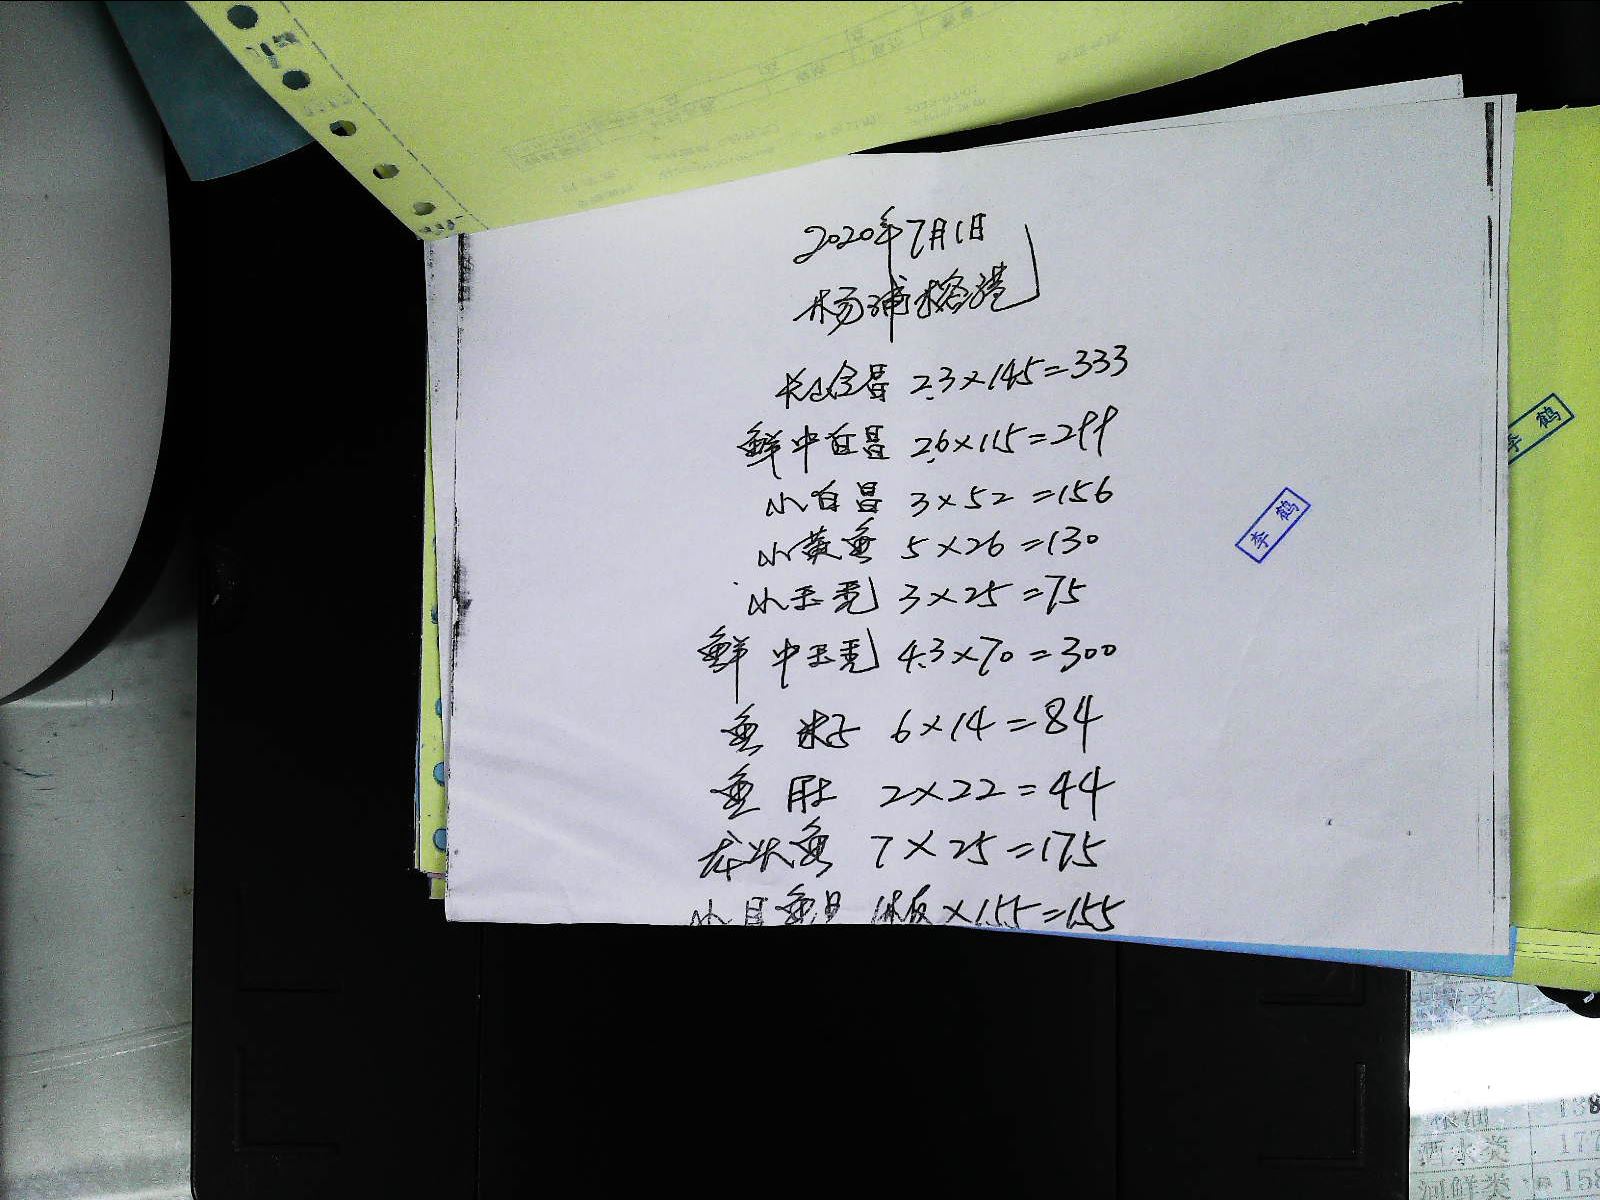 2020年7月1日
杨浦榕港
2.3×145=333
鲜中白昌 2.6×115=299
小白昌 3×52=156
小黄鱼 5×26=130
小玉秃 3×25=75
鲜 中玉秃 4.3×70=300
鱼 籽 6×14=84
鱼 肚 2×22=44
龙头鱼 7×25=175
×155=155
李鹤
李鹤
酒水类 177
河鲜类 158